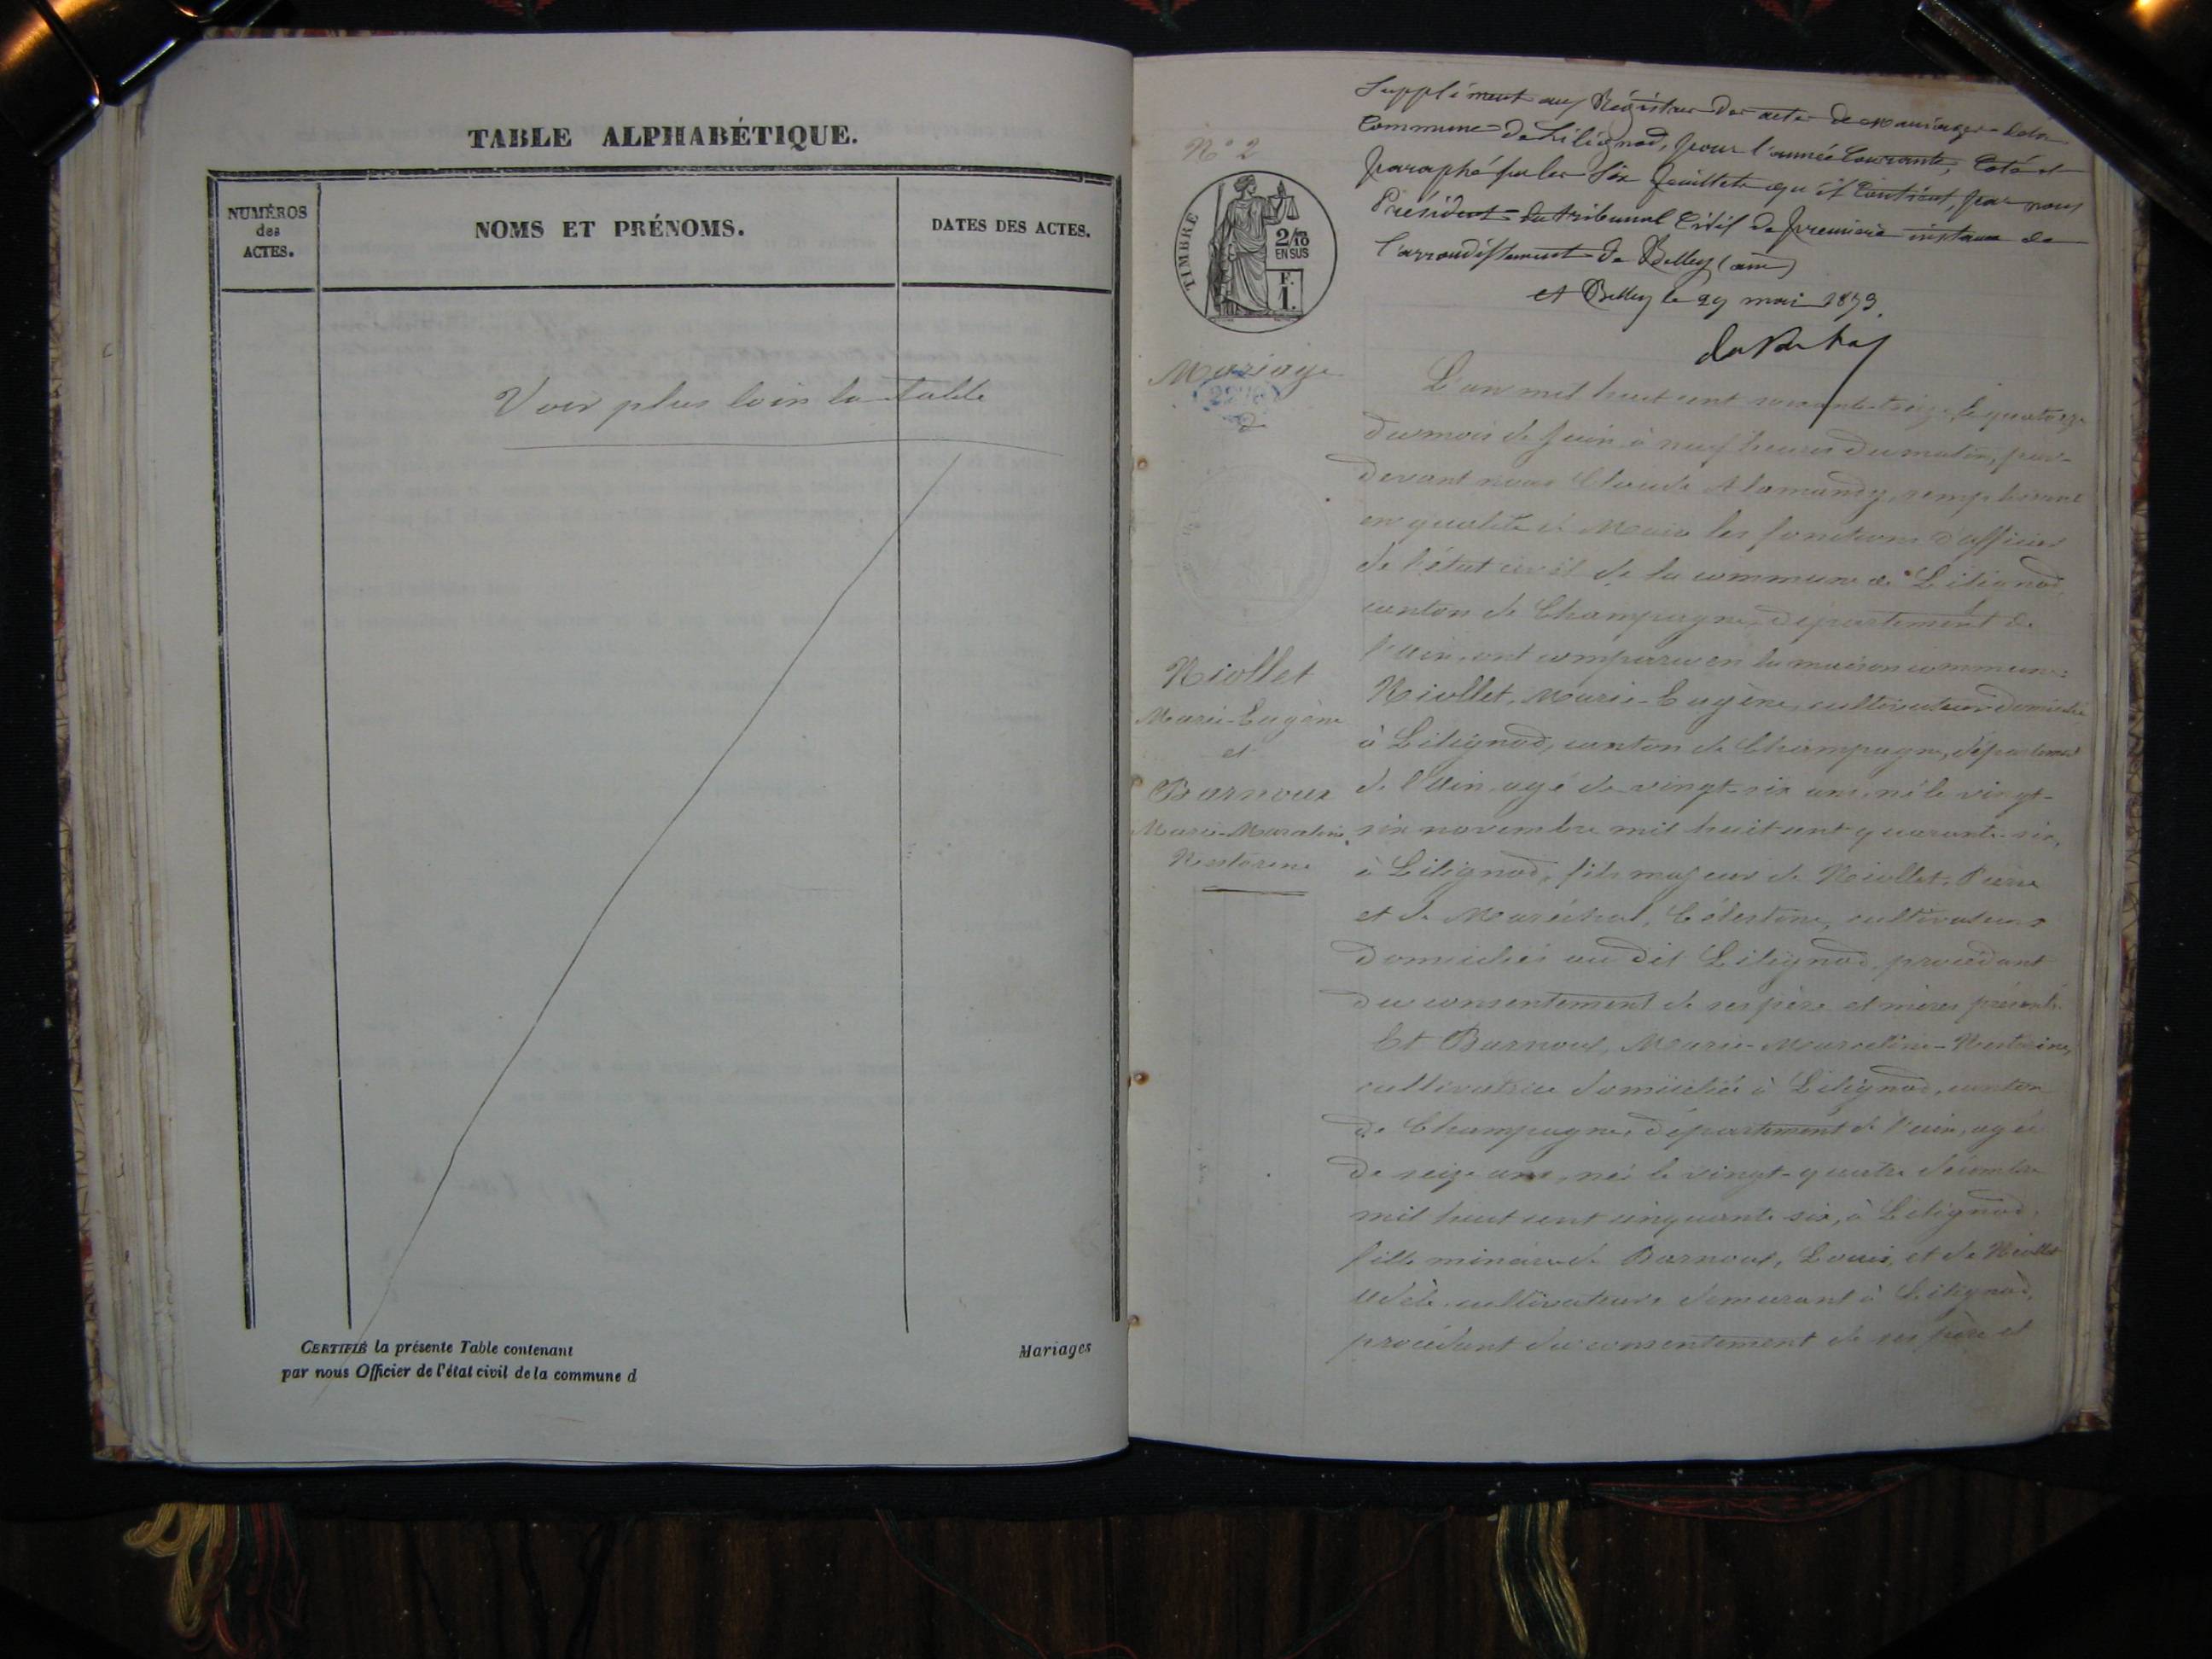 TABLE ALPHABÉTIQUE.
NUMÉROS
des
ACTES.
NOMS ET PRÉNOMS.
DATES DES ACTES.
Voir plus loin la table
CERTIFIÉ la présente Table contenant
Mariages
par nous Officier de l'état civil de la commune d
Supplément aux Registres des actes de mariages de la
Commune de Lilignod, pour l'année Courante, Coté et
paraphé sur les Six feuillets qu'il Contient, par nous
Président du tribunal Civil de première instance de
l'arrondissement de Belley (ain)
Belley le 29 mai 1873.
N° 2
TIMBRE
2/10
EN SUS
F.
1.
Mariage
2
Niollet
Marie-Eugène
et
Barnoux
Marie-Marceline
L'an mil huit cent soixante-treize, le quatorze
du mois de Juin à neuf heures du matin, par-
devant nous Claude Alamandy, remplissant
en qualité de Maire les fonctions d'officier
de l'état civil de la commune de Lilignod,
canton de Champagne, département de
l'Ain, ont comparu en la maison commune:
Niollet, Marie-Eugène, cultivateur domicilié
à Lilignod, canton de Champagne, département
de l'Ain, agé de vingt-six ans, né le vingt-
six novembre mil huit cent quarante-six,
à Lilignod, fils majeur de Niollet, Pierre
et de Maréchal, Célestine, cultivateurs
domiciliés au dit Lilignod, procédant
du consentement de ses père et mères présents.
Et Barnoux, Marie-Marceline-
cultivatrice domiciliée à Lilignod, canton
de Champagne, département de l'ain, agée
de seize ans, née le vingt-quatre décembre
mil huit cent cinquante six, à Lilignod,
fille mineure de Barnoux, Louis, et de Niollet
Adèle, cultivateurs demeurant à Lilignod,
procédant du consentement de ses père et